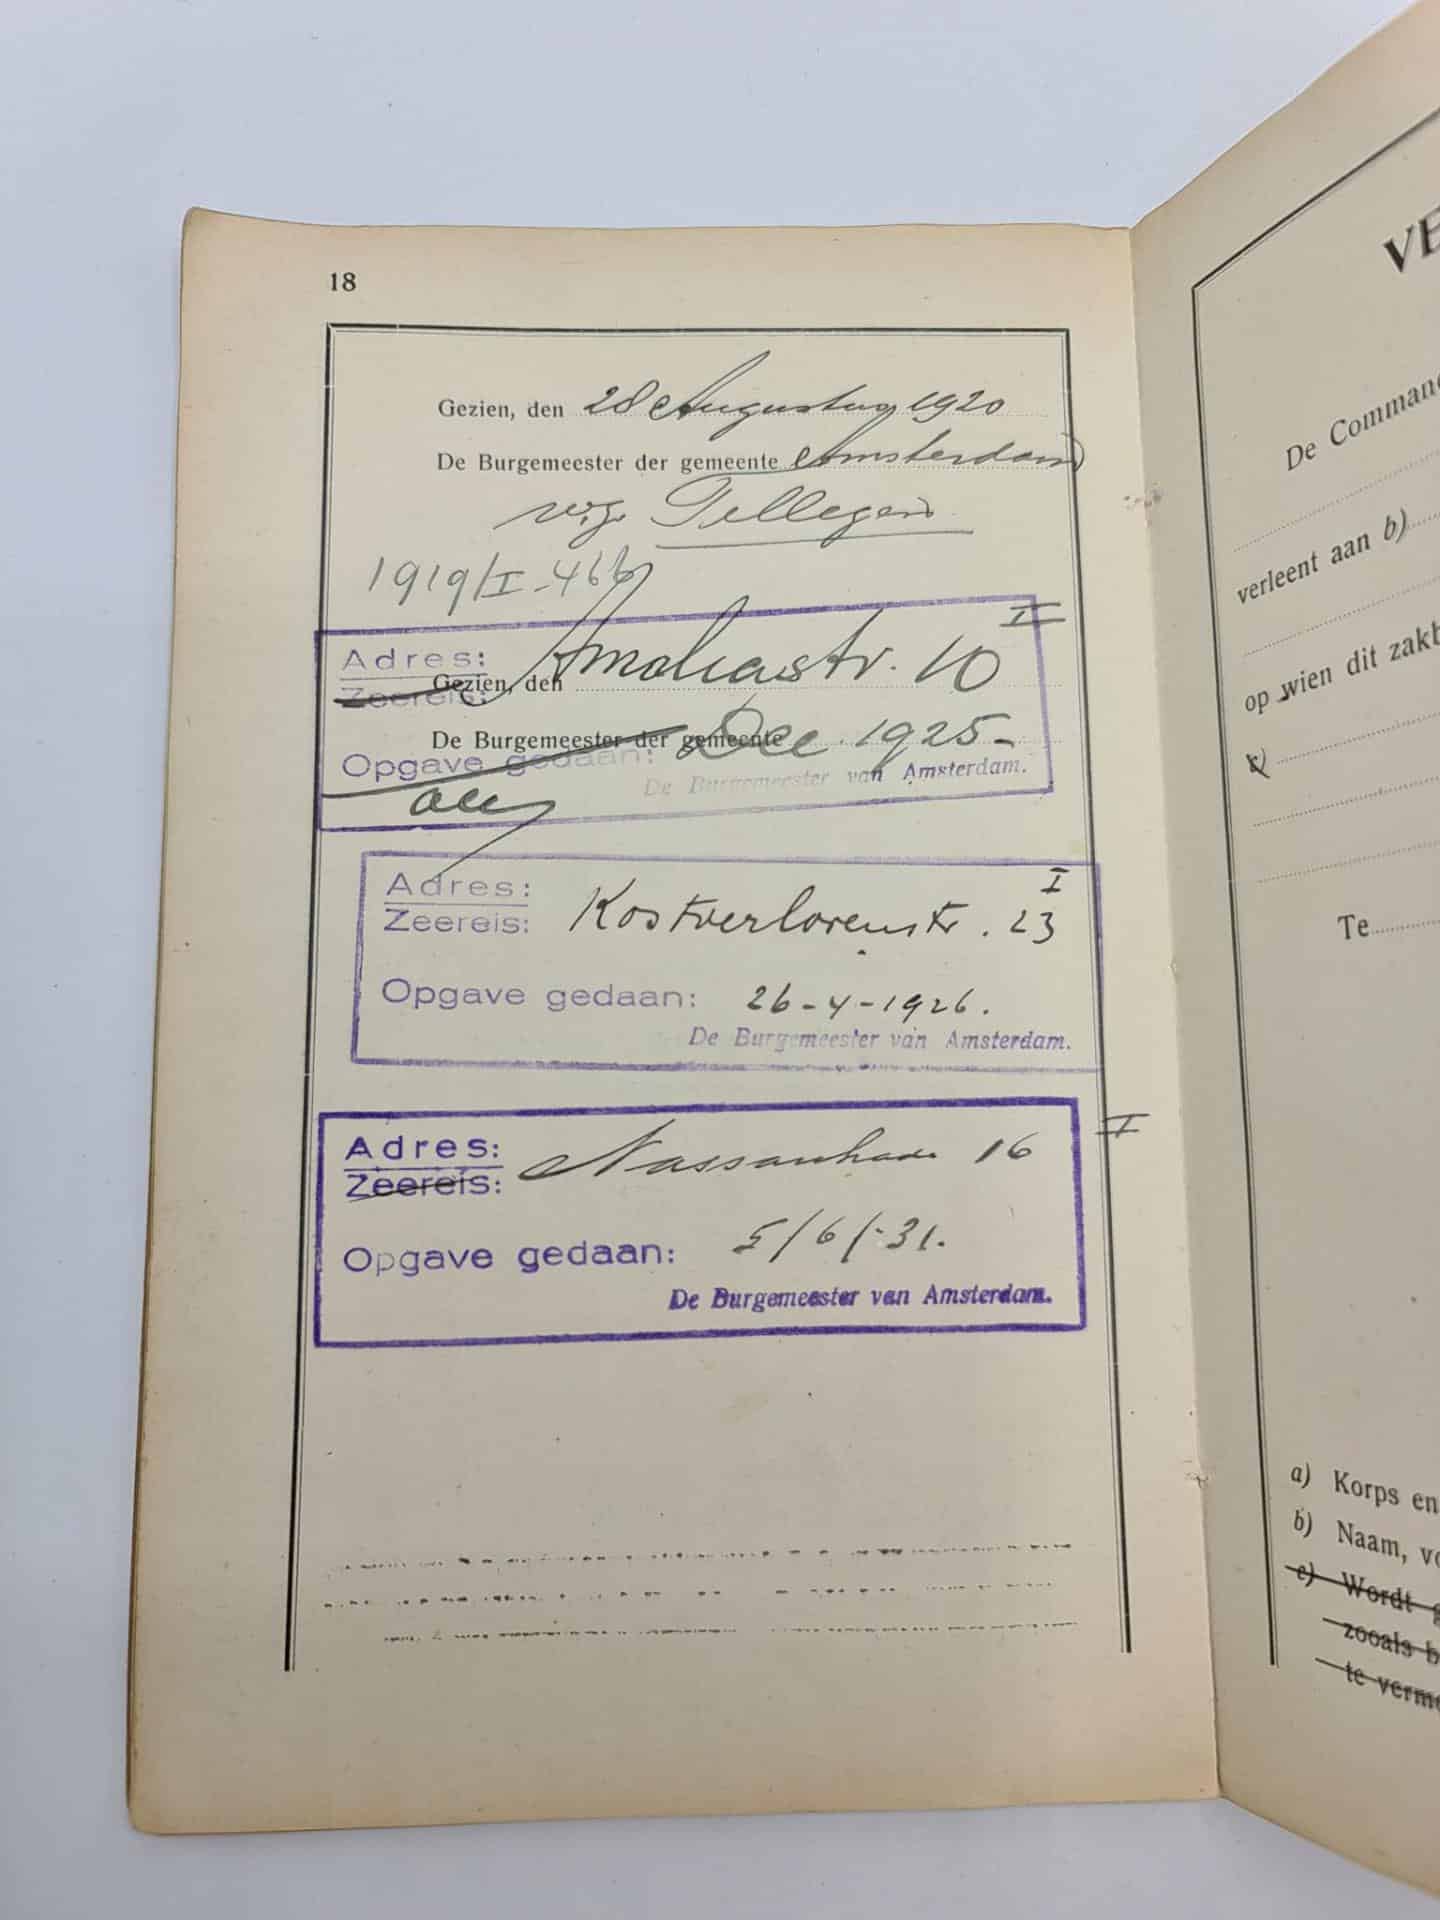 18
Gezien, den 28 Augustus 1920
De Burgemeester der gemeente Amsterdam
w.g. Tellegen
1919/I-466
I
Adres: Amaliastr. 10
Zeereis:
Gezien, den
De Burgemeester der gemeente
Opgave gedaan: Dec. 1925-
De Burgemeester van Amsterdam.
Adres:
I
Zeereis: Kostverlorenstr. 23
Opgave gedaan: 26-4-1926.
De Burgemeester van Amsterdam.
Adres: Nassaukade 16 I
Zeereis:
Opgave gedaan: 5/6/-31.
De Burgemeester van Amsterdam.
VE
De Comman
verleent aan b)
op wien dit zakb
c)
Te
a) Korps en
b) Naam, vo
c) Wordt g
zooals b
te verm